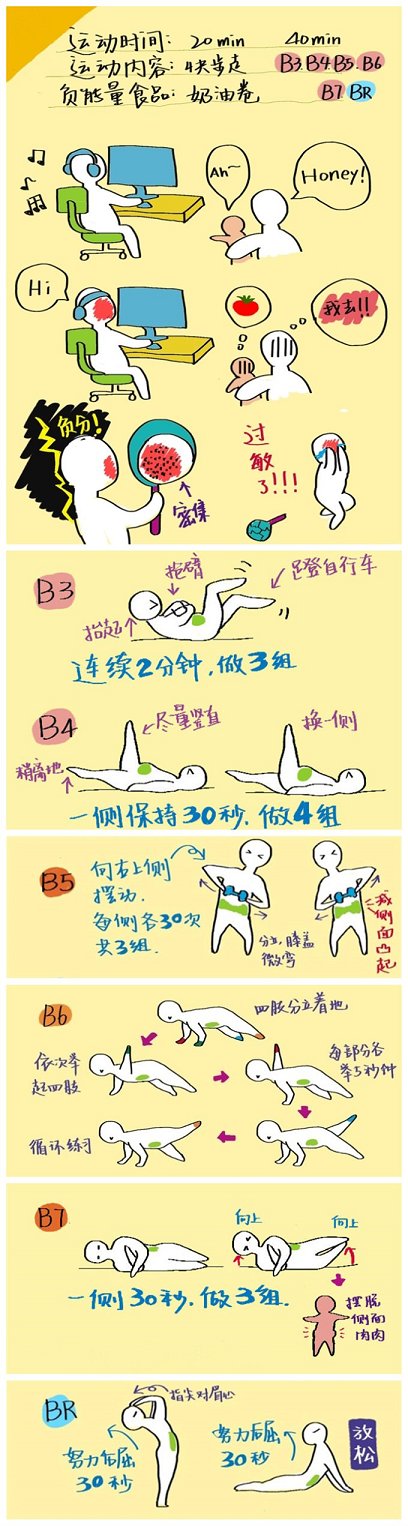 运动时间: 20min 40min
运动内容: 快步走 B3.B4.B5.B6
负能量食品: 奶油卷 B7 BR
Ah~
Honey!
Hi
我去!!
负分!
密集
过敏了!!!
B3
抱臂
足登自行车
抬起
连续2分钟,做3组
B4
尽量竖直
换一侧
稍离地
一侧保持30秒.做4组
B5
向右上侧
摆动.
每侧各30次
共3组.
分立,膝盖
微弯
减侧面凸起
B6
四肢分立着地
依次举
起四肢
每部分各
举5秒钟
循环练习
B7
向上
向上
一侧30秒.做3组.
摆脱
侧面
肉肉
BR
指尖对眉心
努力后屈
30秒
努力后屈
30秒
放松